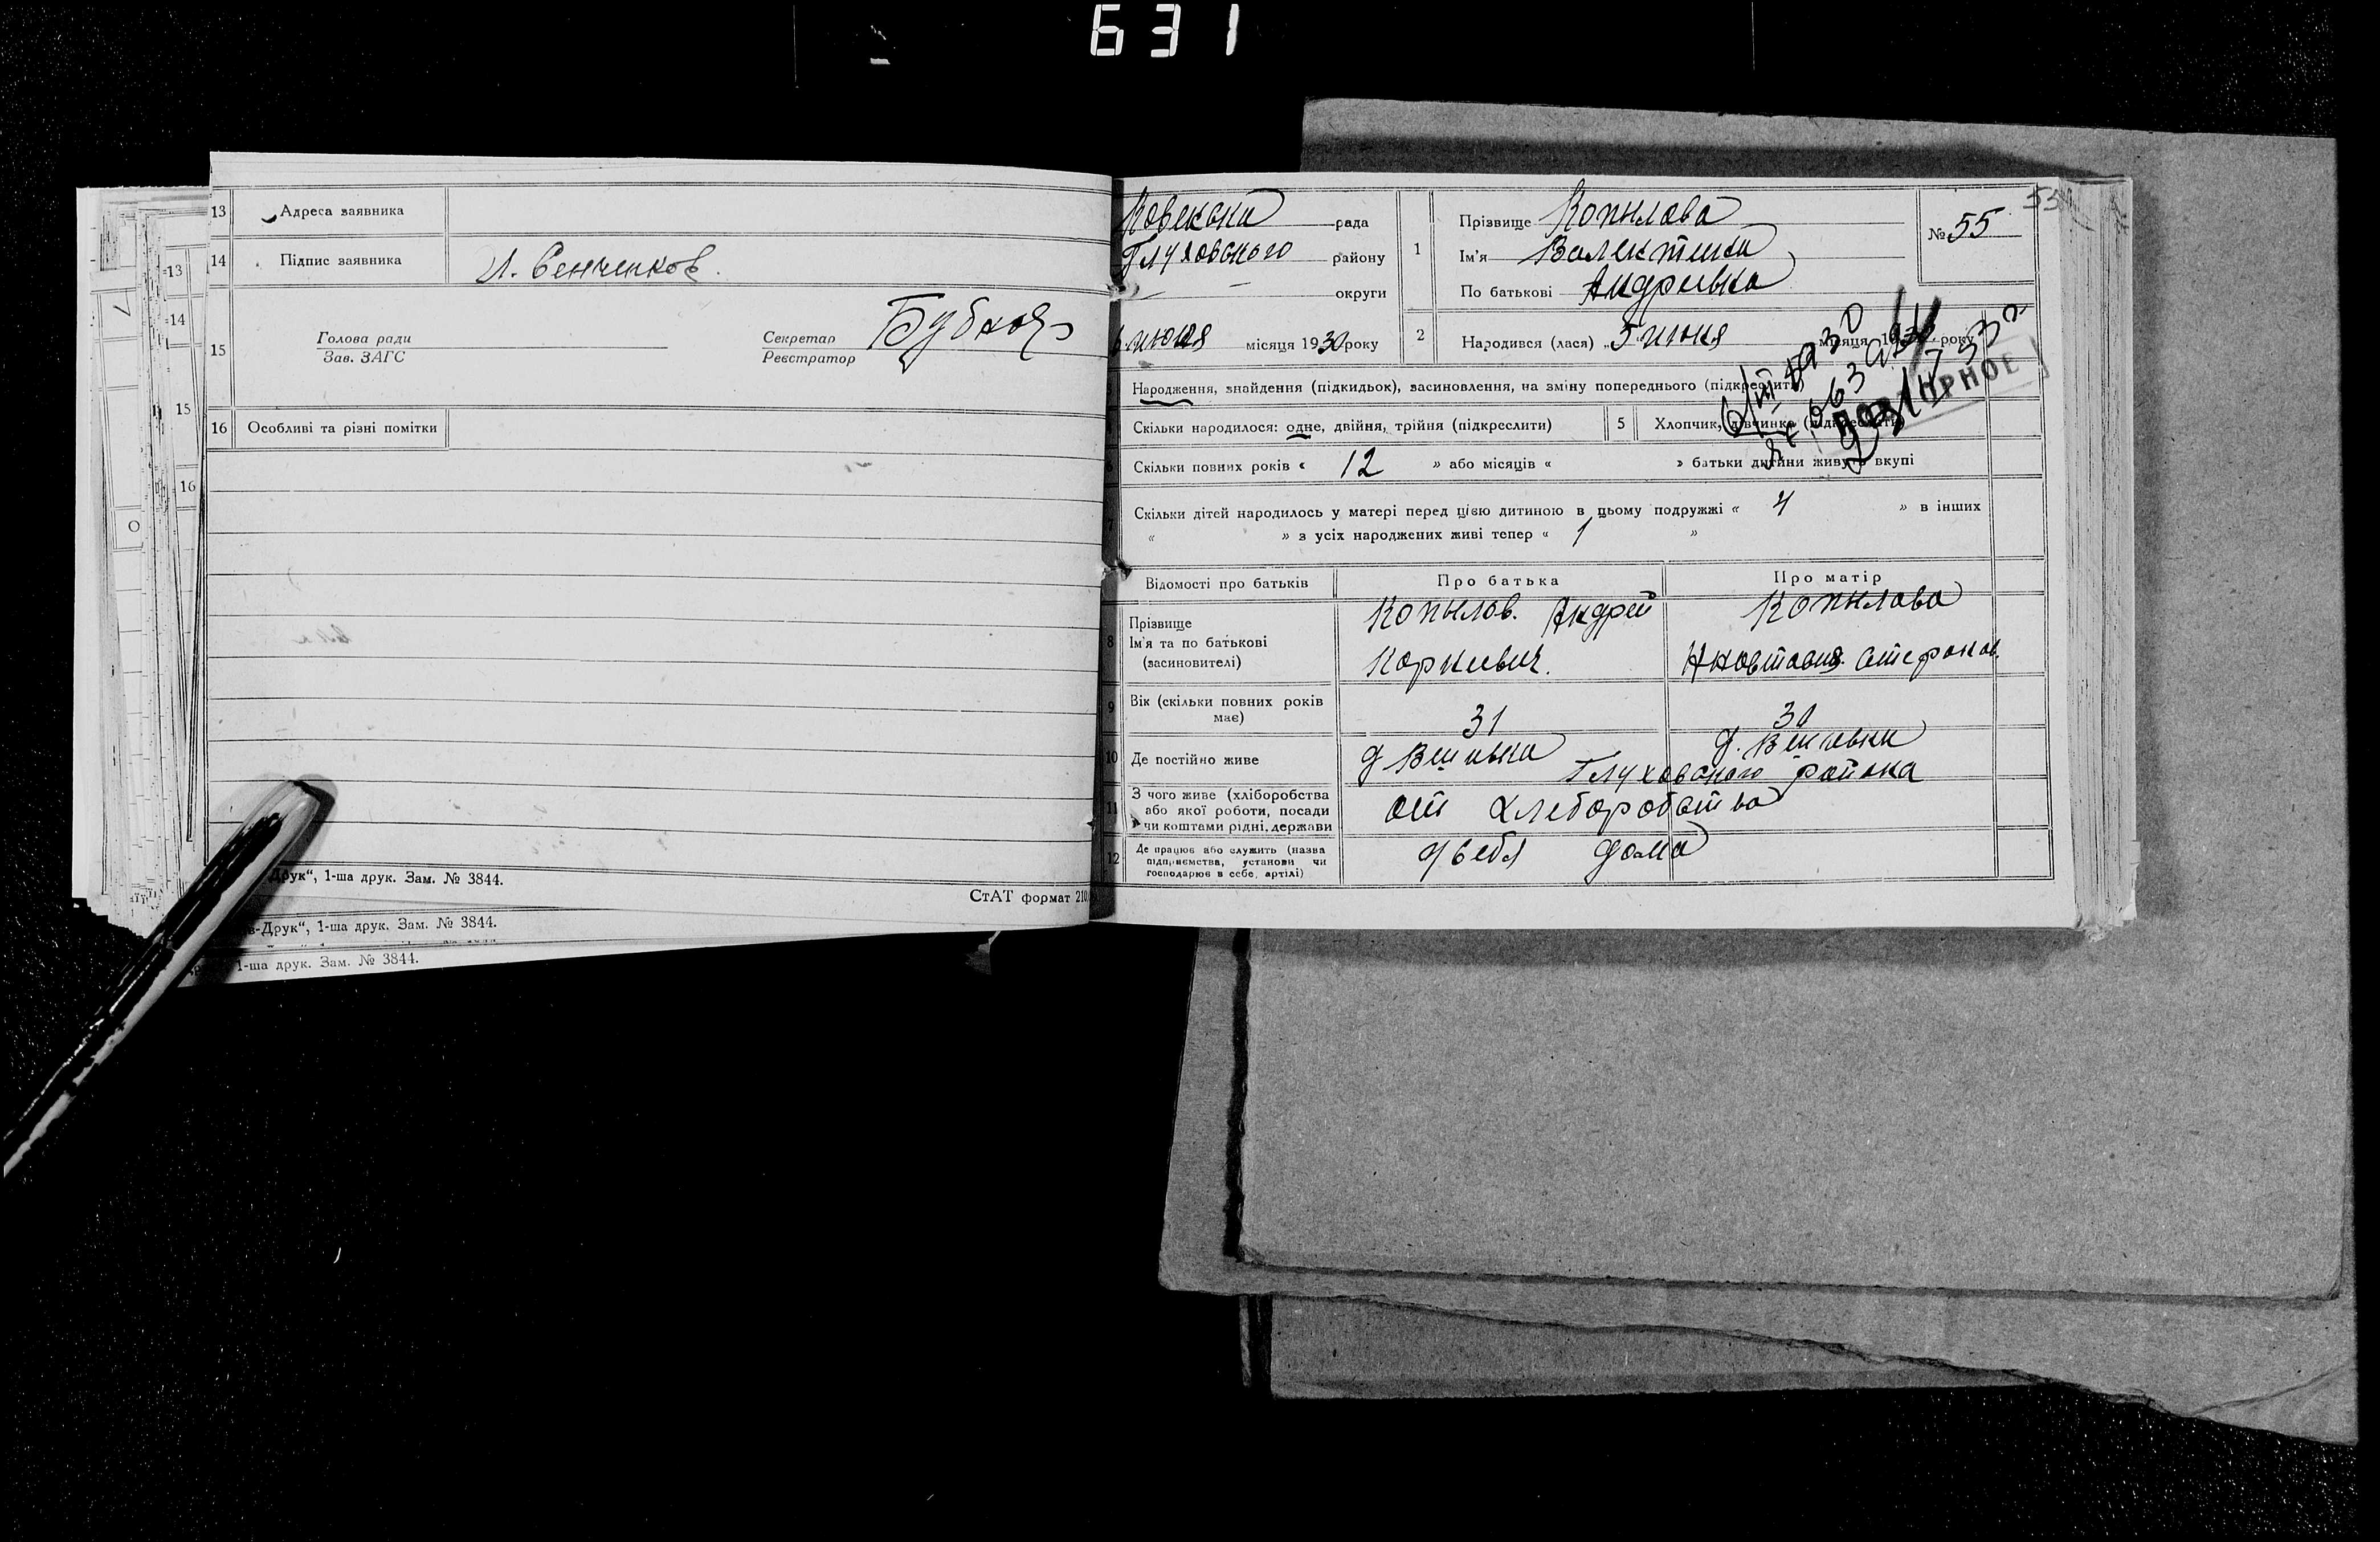 631
13 Адреса заявника
14 Підпис заявника И. Сенченков.
15 Голова ради
Зав. ЗАГС
Секретар
Реєстратор
16 Особливі та різні помітки
13
14
15
16
Друк“, 1-ша друк. Зам. № 3844.
СтАТ формат 210
в-Друк“, 1-ша друк. Зам. № 3844.
1-ша друк. Зам. № 3844.
рада
Глуховського району
округи
июня місяця 1930 року
1 Прізвище Копылова
Ім'я Валентина
По батькові Андреевна
№ 55
55
2 Народився (лася) „5 июня місяця 1930 року
Народження, знайдення (підкидьок), васиновлення, на зміну попереднього (підкреслити)
Скільки народилося: одне, двійня, трійня (підкреслити)
5 Хлопчик, дівчинка (підкреслити)
ПОВТОРНОЕ
6 Скільки повних років « 12 » або місяців « » батьки дитини живуть вкупі
7 Скільки дітей народилось у матері перед цією дитиною в цьому подружжі « 4 » в інших
« » з усіх народжених живі тепер « 1 »
Відомості про батьків Про батька Про матір
8 Прізвище
Ім'я та по батькові
(засиновителі)
Копылов. Андрей
Корнеевич.
Копылова
9 Вік (скільки повних років
має)
31
30
10 Де постійно живе
Глуховского района
11 З чого живе (хліборобства
або якої роботи, посади
чи коштами рідні, держави
от хлеборобства
12 Де працює або служить (назва
підприємства, установи чи
господарює в себе, артілі)
у себя дома